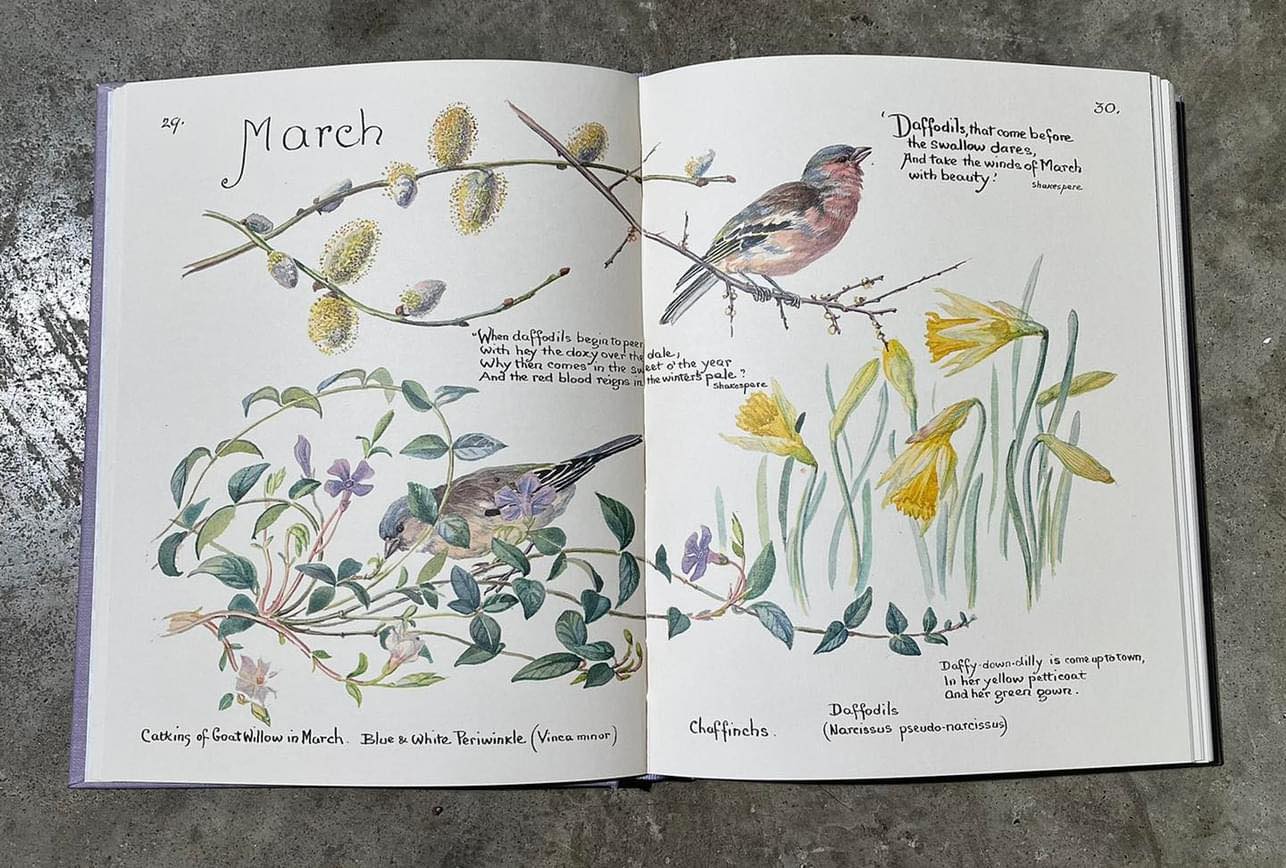 29.
March
"When daffodils begin to peer
With hey the doxy over the dale,
Why then comes in the sweet o' the year
And the red blood reigns in the winter's pale?
Shakespere
Catkins of Goat Willow in March. Blue & White Periwinkle (Vinca minor)
30.
'Daffodils, that come before
the swallow dares,
And take the winds of March
with beauty.'
Shakespere
Daffy-down-dilly is come up to town,
In her yellow petticoat
And her green gown.
Daffodils
Chaffinchs.
(Narcissus pseudo-narcissus)